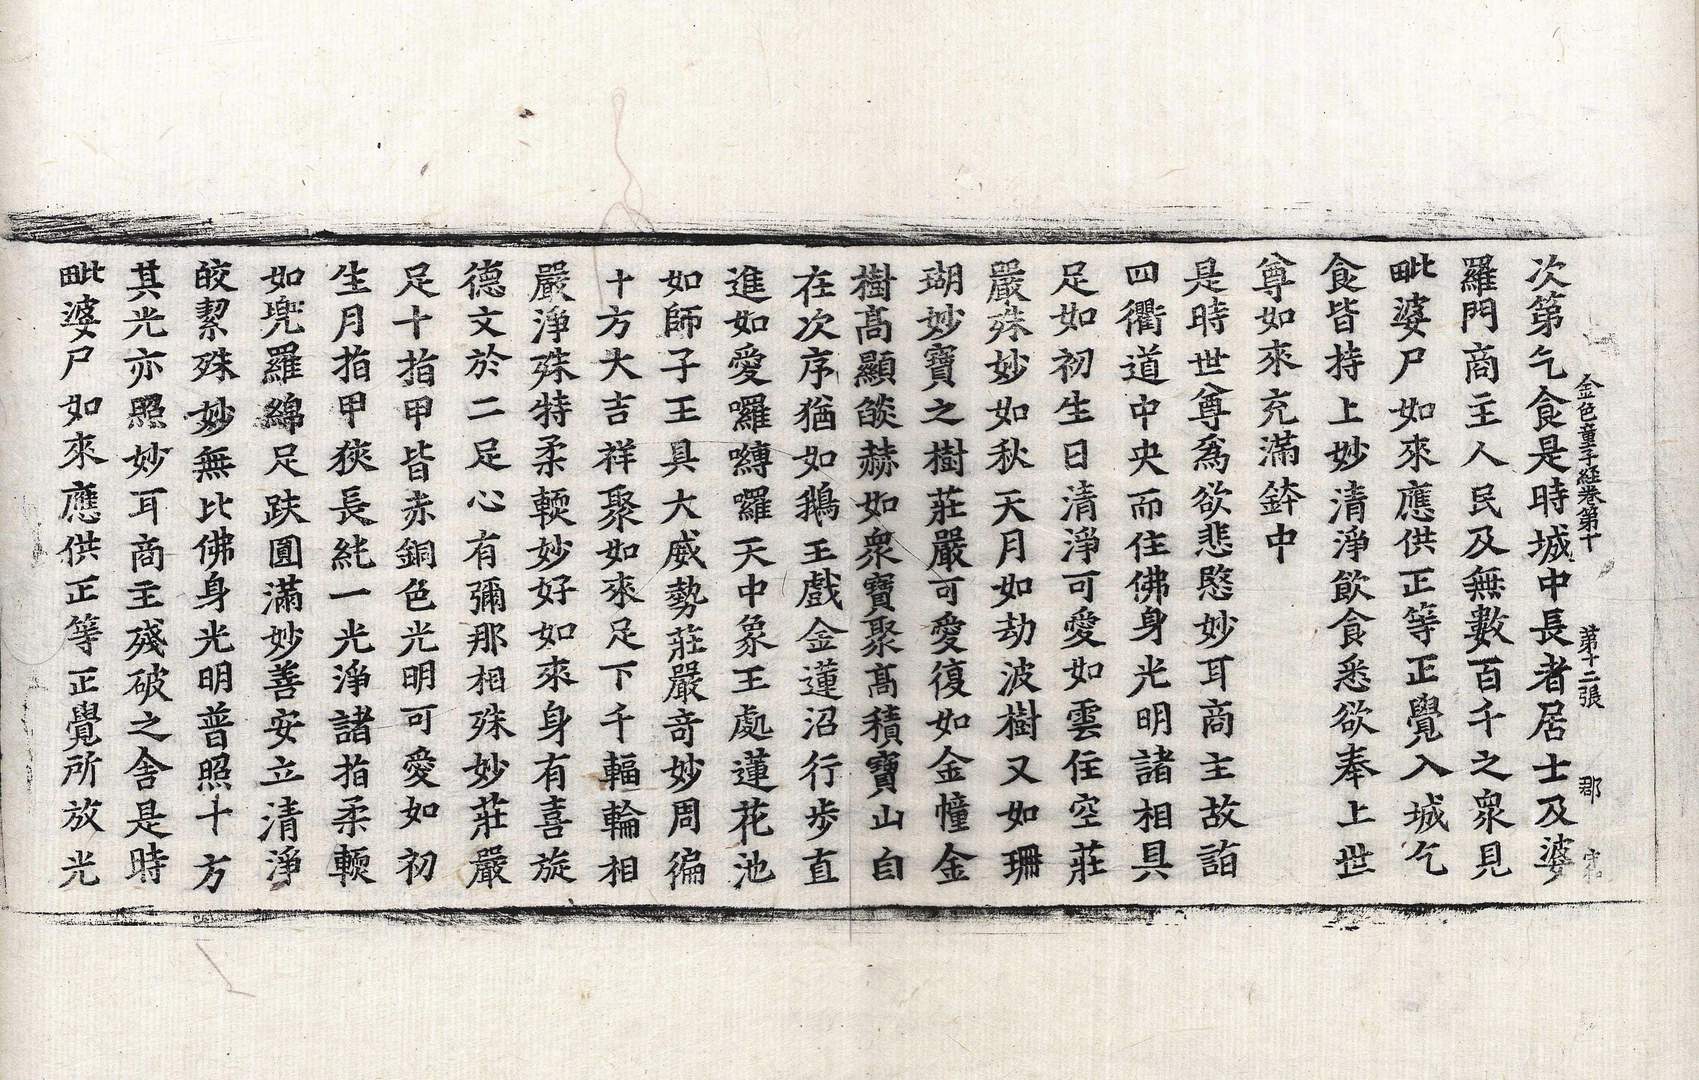 金色童子經卷第十 第十二張 郡
次第乞食是時城中長者居士及婆
羅門商主人民及無數百千之衆見
毗婆尸如來應供正等正覺入城乞
食皆持上妙清淨飮食悉欲奉上世
尊如來充滿鉢中
是時世尊爲欲悲愍妙耳商主故詣
四衢道中央而住佛身光明諸相具
足如初生日清淨可愛如雲住空莊
嚴殊妙如秋天月如劫波樹又如珊
瑚妙寶之樹莊嚴可愛復如金幢金
樹髙顯燄赫如衆寶聚髙積寶山自
在次序猶如鵝王戲金蓮沼行步直
進如愛囉嚩囉天中象王處蓮花池
如師子王具大威勢莊嚴竒妙周徧
十方大吉祥聚如來足下千輻輪相
嚴淨殊特柔輭妙好如來身有喜旋
德文於二足心有彌那相殊妙莊嚴
足十指甲皆赤銅色光明可愛如初
生月指甲狹長純一光淨諸指柔輭
如兜羅綿足趺圓滿妙善安立清淨
皎潔殊妙無比佛身光明普照十方
其光亦照妙耳商主殘破之舍是時
毗婆尸如來應供正等正覺所放光